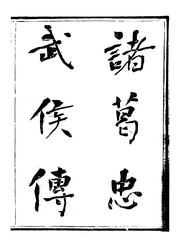 諸葛忠
武侯傳